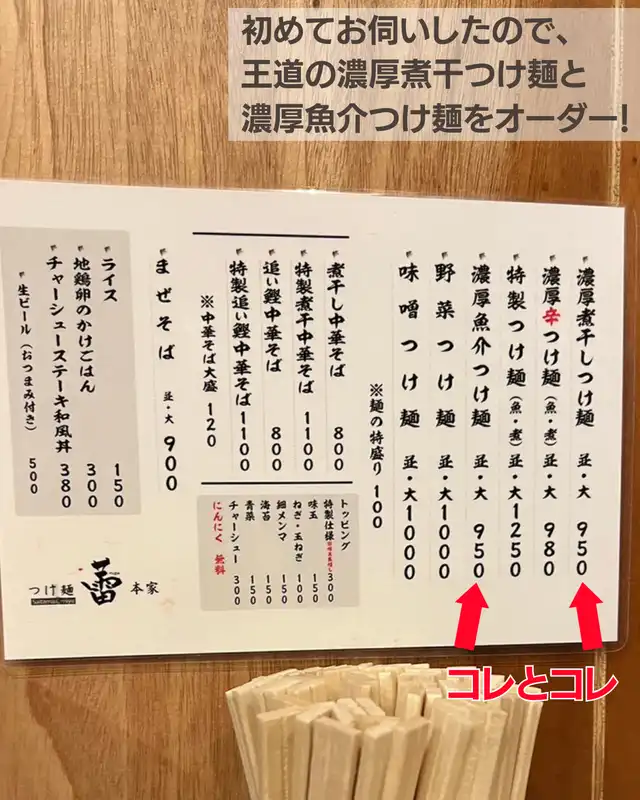 初めてお伺いしたので、
王道の濃厚煮干つけ麺と
濃厚魚介つけ麺をオーダー!
濃厚煮干しつけ麺 並・大 950
濃厚辛つけ麺(魚・煮) 並・大 980
特製つけ麺(魚・煮) 並・大 1250
濃厚魚介つけ麺 並・大 950
野菜つけ麺 並・大 1000
味噌つけ麺 並・大 1000
※麺の特盛り 100
煮干し中華そば 800
特製煮干中華そば 1100
追い鰹中華そば 800
特製追い鰹中華そば 1100
※中華そば大盛 120
トッピング
特製仕様 300
味玉 150
ねぎ・玉ねぎ 100
細メンマ 150
海苔 150
青菜 150
チャーシュー 300
にんにく 無料
まぜそば 並・大 900
ライス 150
地鶏卵のかけごはん 300
チャーシューステーキ和風丼 380
生ビール(おつまみ付き) 500
つけ麺 蕾 本家
コレとコレ